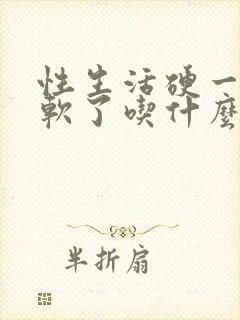 性生活硬一
軟了喫什麼
半折扇